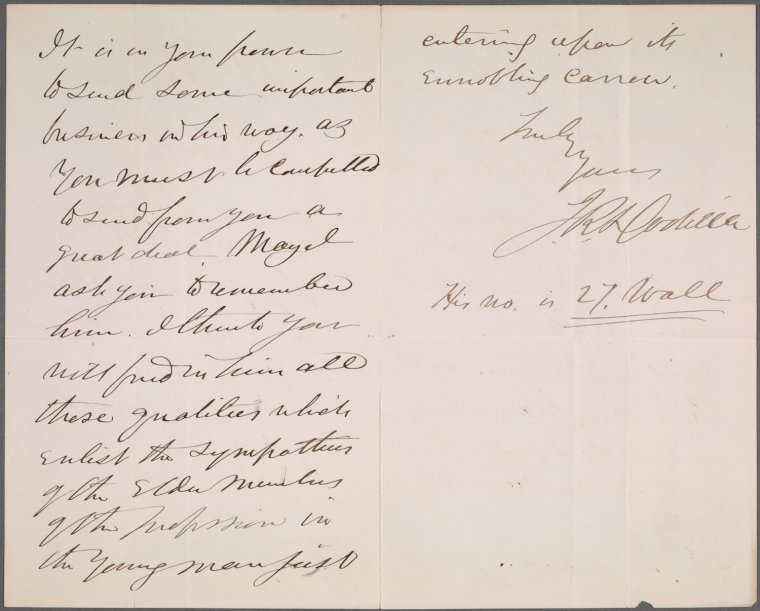 It is in your power
to send some important
business in his way. as
you must be compelled
to send from you a
great deal. May I
ask you to remember
him. I think you
will find in him all
those qualities which
enlist the sympathies
of the Elder Members
of the profession in
the Young man just
entering upon its
Ennobling Career.
Truly
Yours
His no. is 27. Wall